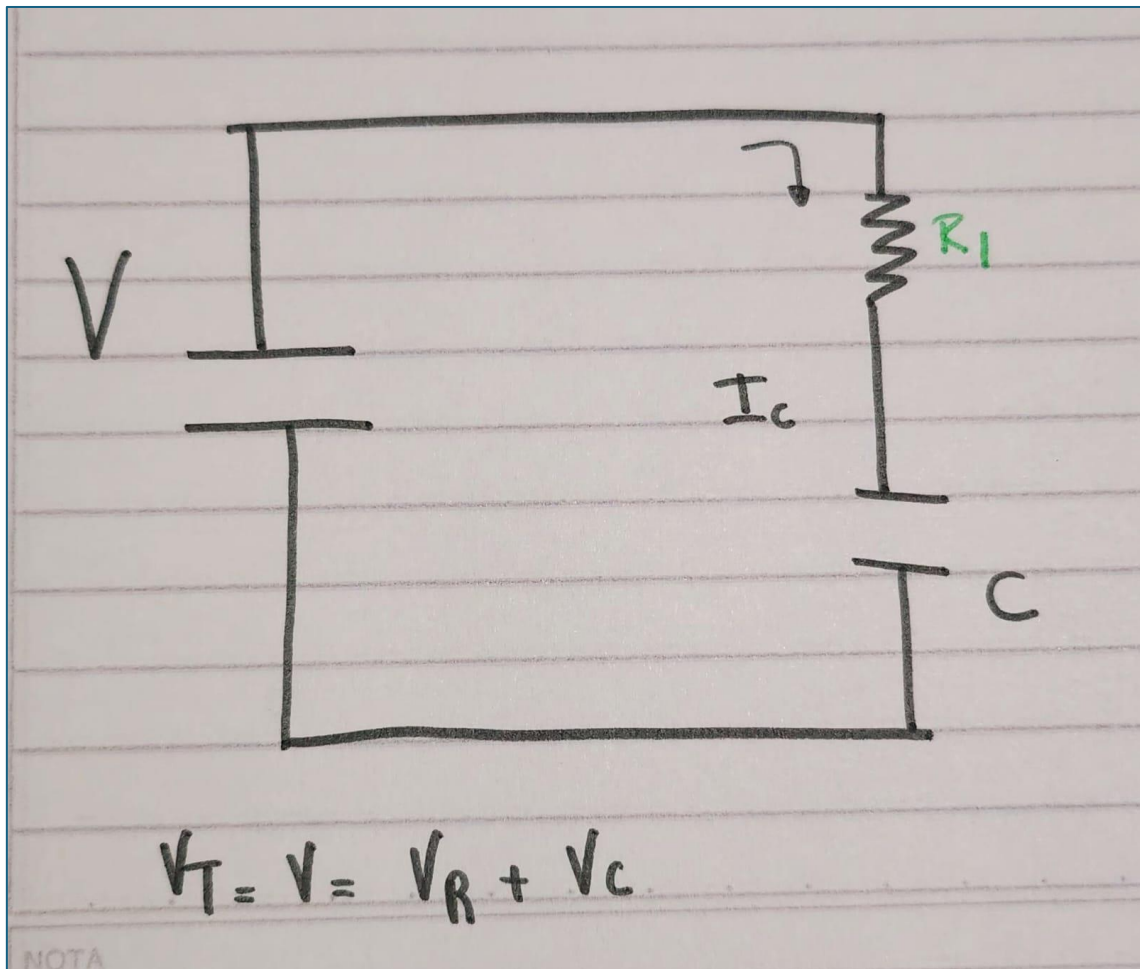 R₁
V
I_c
C
V_T = V = V_R + V_C
NOTA